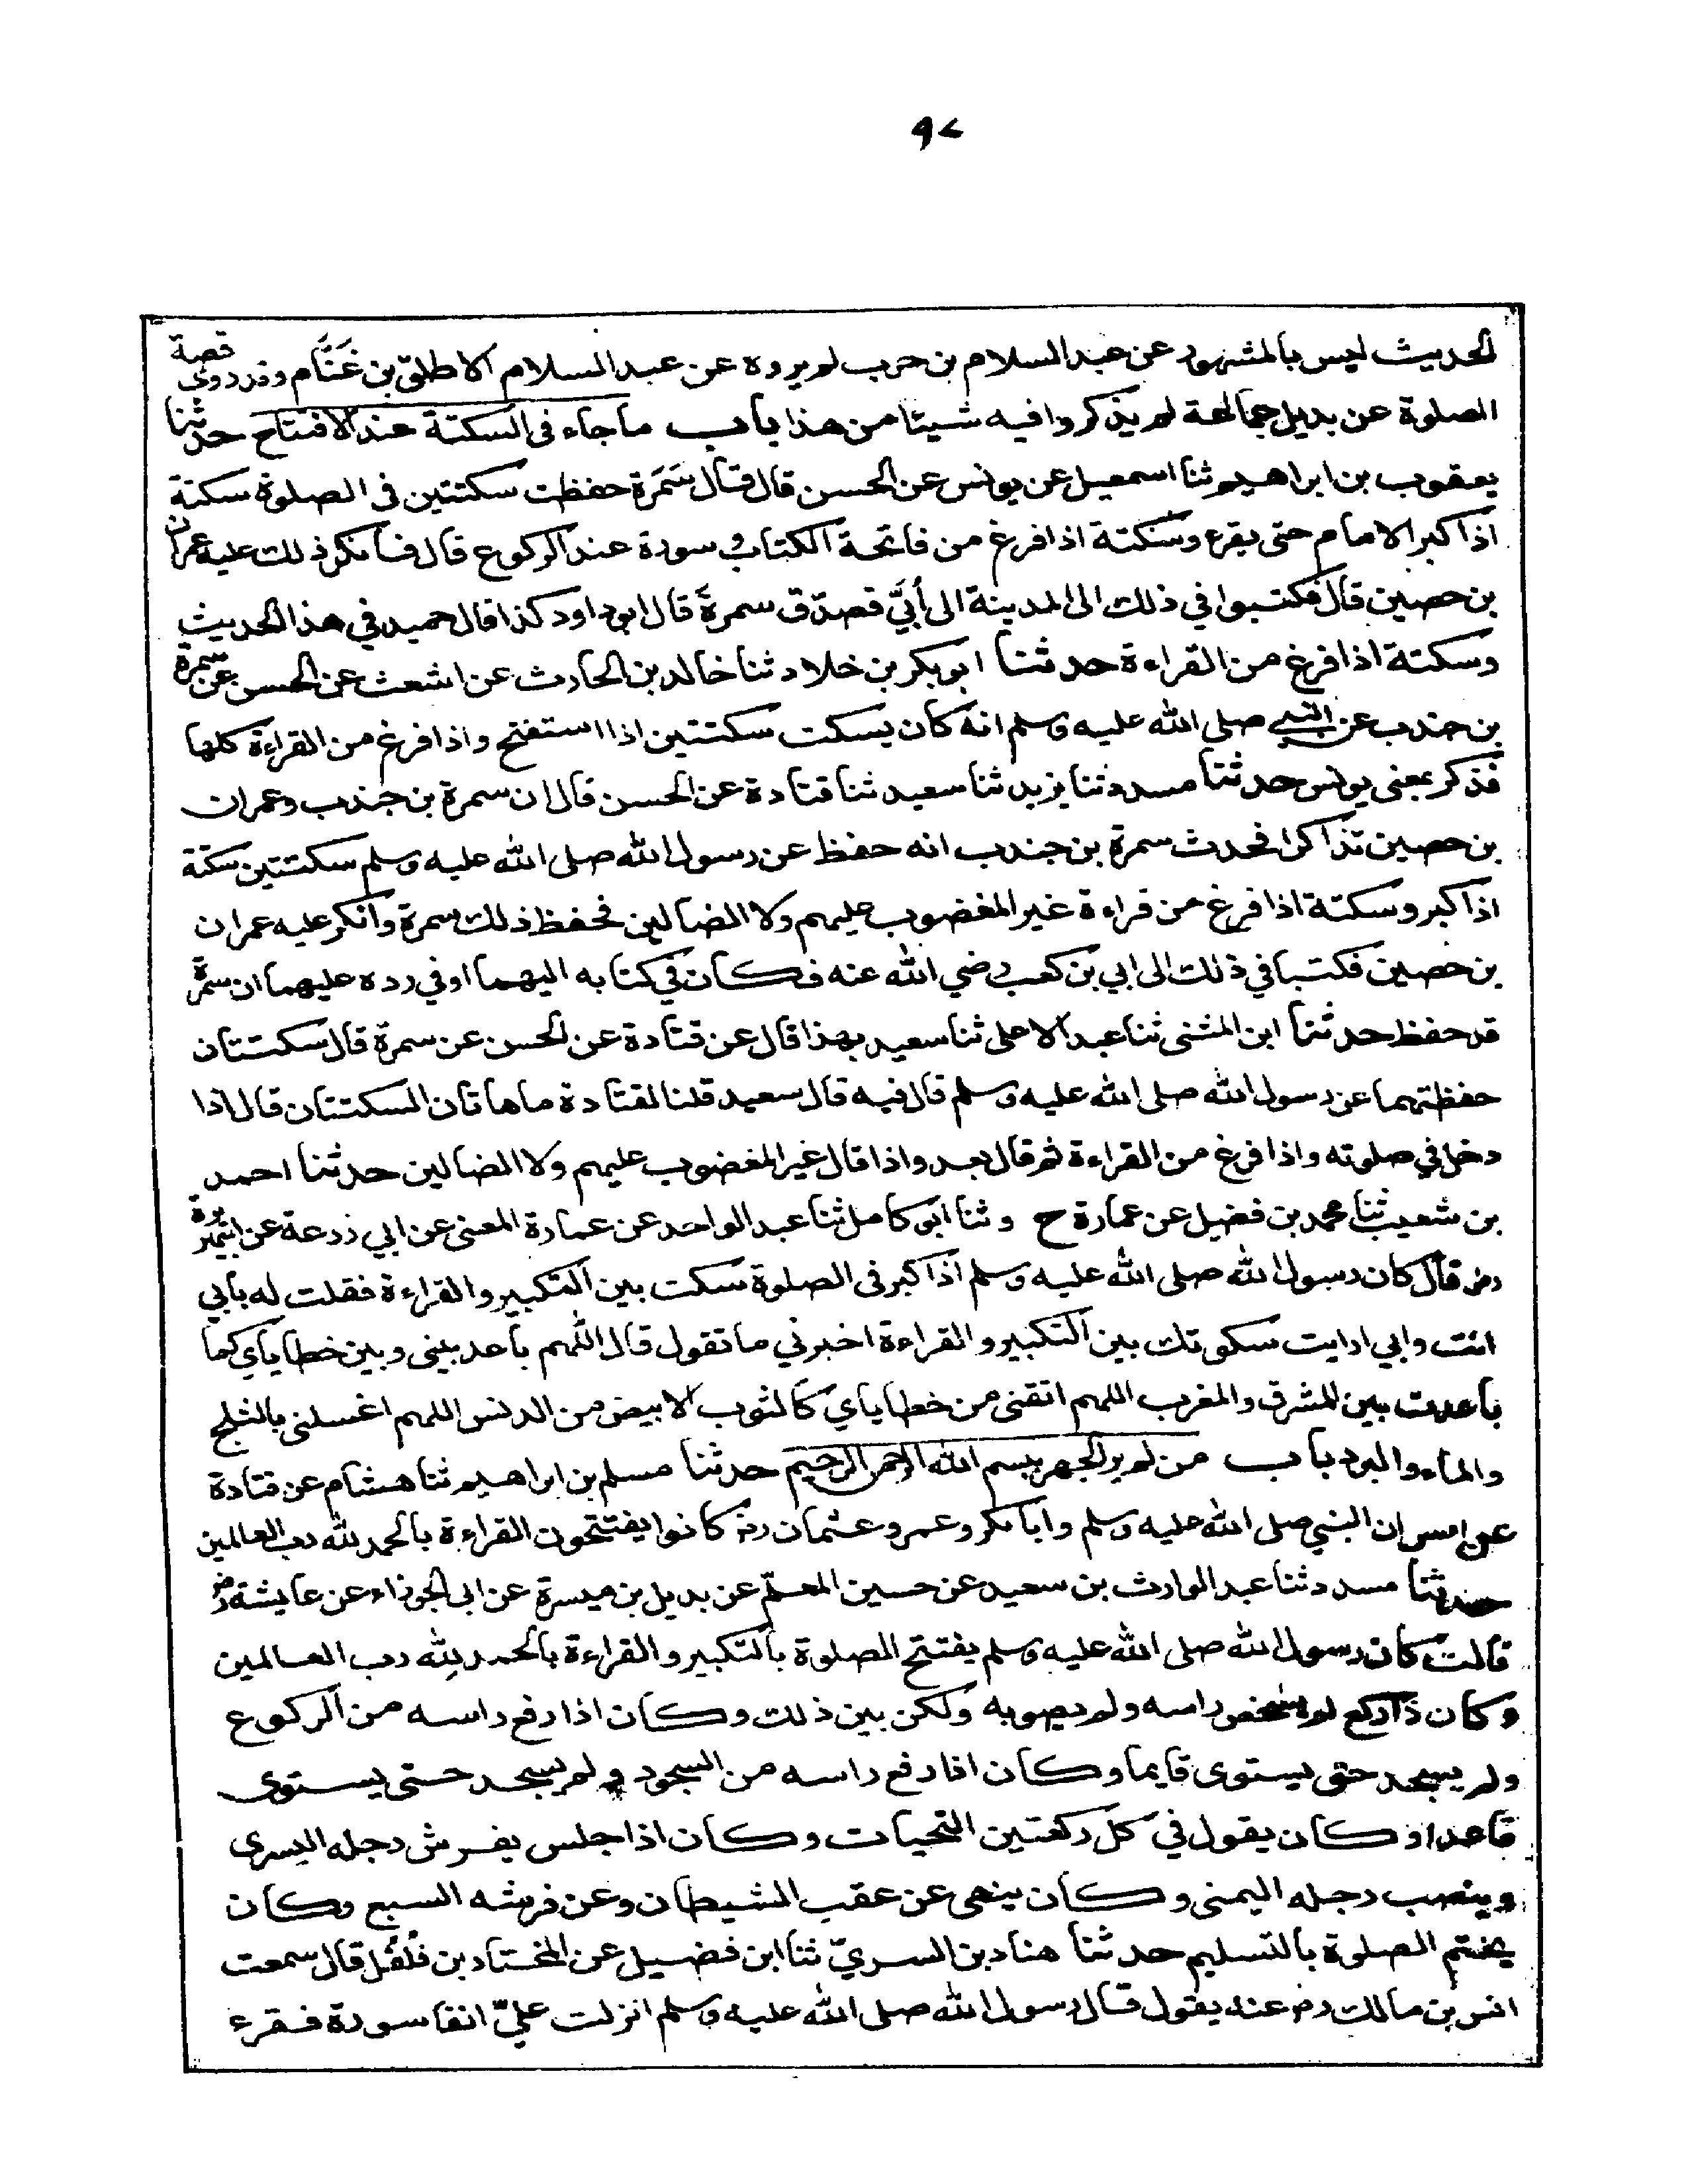 ٩٢
الحديث ليس بالمشهود عن عبد السلام بن حرب لم يروه عن عبد السلام الا طلق بن غَنَّام وقد روى قصة
الصلوة عن بديل جماعة لم يذكروا فيه شيئا من هذا باب ما جاء فى السكتة عند الافتتاح حدثنا
يعقوب بن ابراهيم ثنا اسمعيل عن يونس عن الحسن قال قال سَمَرة حفظت سكتتين فى الصلوة سكتة
اذا كبر الامام حتى يقرء وسكتة اذا فرغ من فاتحة الكتاب و سورة عند الركوع قال فانكر ذلك عليه عمران
بن حصين قال فكتبوا في ذلك الى المدينة الى أُبَيّ فصدّق سمرةَ قال ابو داود كذا قال حميد في هذا الحديث
وسكتة اذا فرغ من القراءة حدثنا ابو بكر بن خلاد ثنا خالد بن الحارث عن اشعث عن الحسن عن سمرة
بن جندب عن النبي صلى الله عليه وسلم انه كان يسكت سكتتين اذا استفتح واذا فرغ من القراءة كلها
فذكر بمعنى يونس حدثنا مسدد ثنا يزيد ثنا سعيد ثنا قتادة عن الحسن قال ان سمرة بن جندب وعمران
بن حصين تذاكرا فحدث سمرة بن جندب انه حفظ عن رسول الله صلى الله عليه وسلم سكتتين سكتة
اذا كبر وسكتة اذا فرغ من قراءة غير المغضوب عليهم ولا الضالين فحفظ ذلك سمرة وانكر عليه عمران
بن حصين فكتبا في ذلك الى ابي بن كعب رضي الله عنه فكان في كتابه اليهما او في رده عليهما ان سمرة
قد حفظ حدثنا ابن المثنى ثنا عبد الاعلى ثنا سعيد بهذا قال عن قتادة عن الحسن عن سمرة قال سكتتان
حفظتهما عن رسول الله صلى الله عليه وسلم قال فيه قال سعيد قلنا لقتادة ما هاتان السكتتان قال اذا
دخل في صلوته واذا فرغ من القراءة ثم قال بعد واذا قال غير المغضوب عليهم ولا الضالين حدثنا احمد
بن شعيب ثنا محمد بن فضيل عن عمارة ح وثنا ابو كامل ثنا عبد الواحد عن عمارة المعنى عن ابي زرعة عن ابي هريرة
رض قال كان رسول الله صلى الله عليه وسلم اذا كبر فى الصلوة سكت بين التكبير والقراءة فقلت له بابي
انت وابي ارايت سكوتك بين التكبير والقراءة اخبرني ما تقول قال اللهم باعد بيني وبين خطاياي كما
باعدت بين المشرق والمغرب اللهم انقنى من خطاياي كالثوب الابيض من الدنس اللهم اغسلنى بالثلج
والماء والبرد باب من لم ير الجهر ببسم الله الرحمن الرحيم حدثنا مسلم بن ابراهيم ثنا هشام عن قتادة
عن انس ان النبي صلى الله عليه وسلم وابا بكر وعمر وعثمان رض كانوا يفتتحون القراءة بالحمد لله رب العالمين
حدثنا مسدد ثنا عبد الوارث بن سعيد عن حسين المعلّم عن بديل بن ميسرة عن ابى الجوزاء عن عايشة رض
قالت كان رسول الله صلى الله عليه وسلم يفتتح الصلوة بالتكبير والقراءة بالحمد لِله رب العالمين
وكان ذا ركع لم يشخص راسه ولم يصوبه ولكن بين ذلك وكان اذا رفع راسه من الركوع
ولم يسجد حتى يستوى قايما وكان اذا رفع راسه من السجود ولم يسجد حتى يستوى
قاعدا وكان يقول في كل ركعتين التحيات وكان اذا جلس يفرش رجله اليسرى
وينصب رجله اليمنى وكان ينهى عن عقب الشيطان وعن فرشه السبع وكان
يختم الصلوة بالتسليم حدثنا هناد بن السريّ ثنا ابن فضيل عن المختار بن فُلْفُل قال سمعت
انس بن مالك رض عنه يقول قال رسول الله صلى الله عليه وسلم انزلت عليّ انفا سورة فقرء